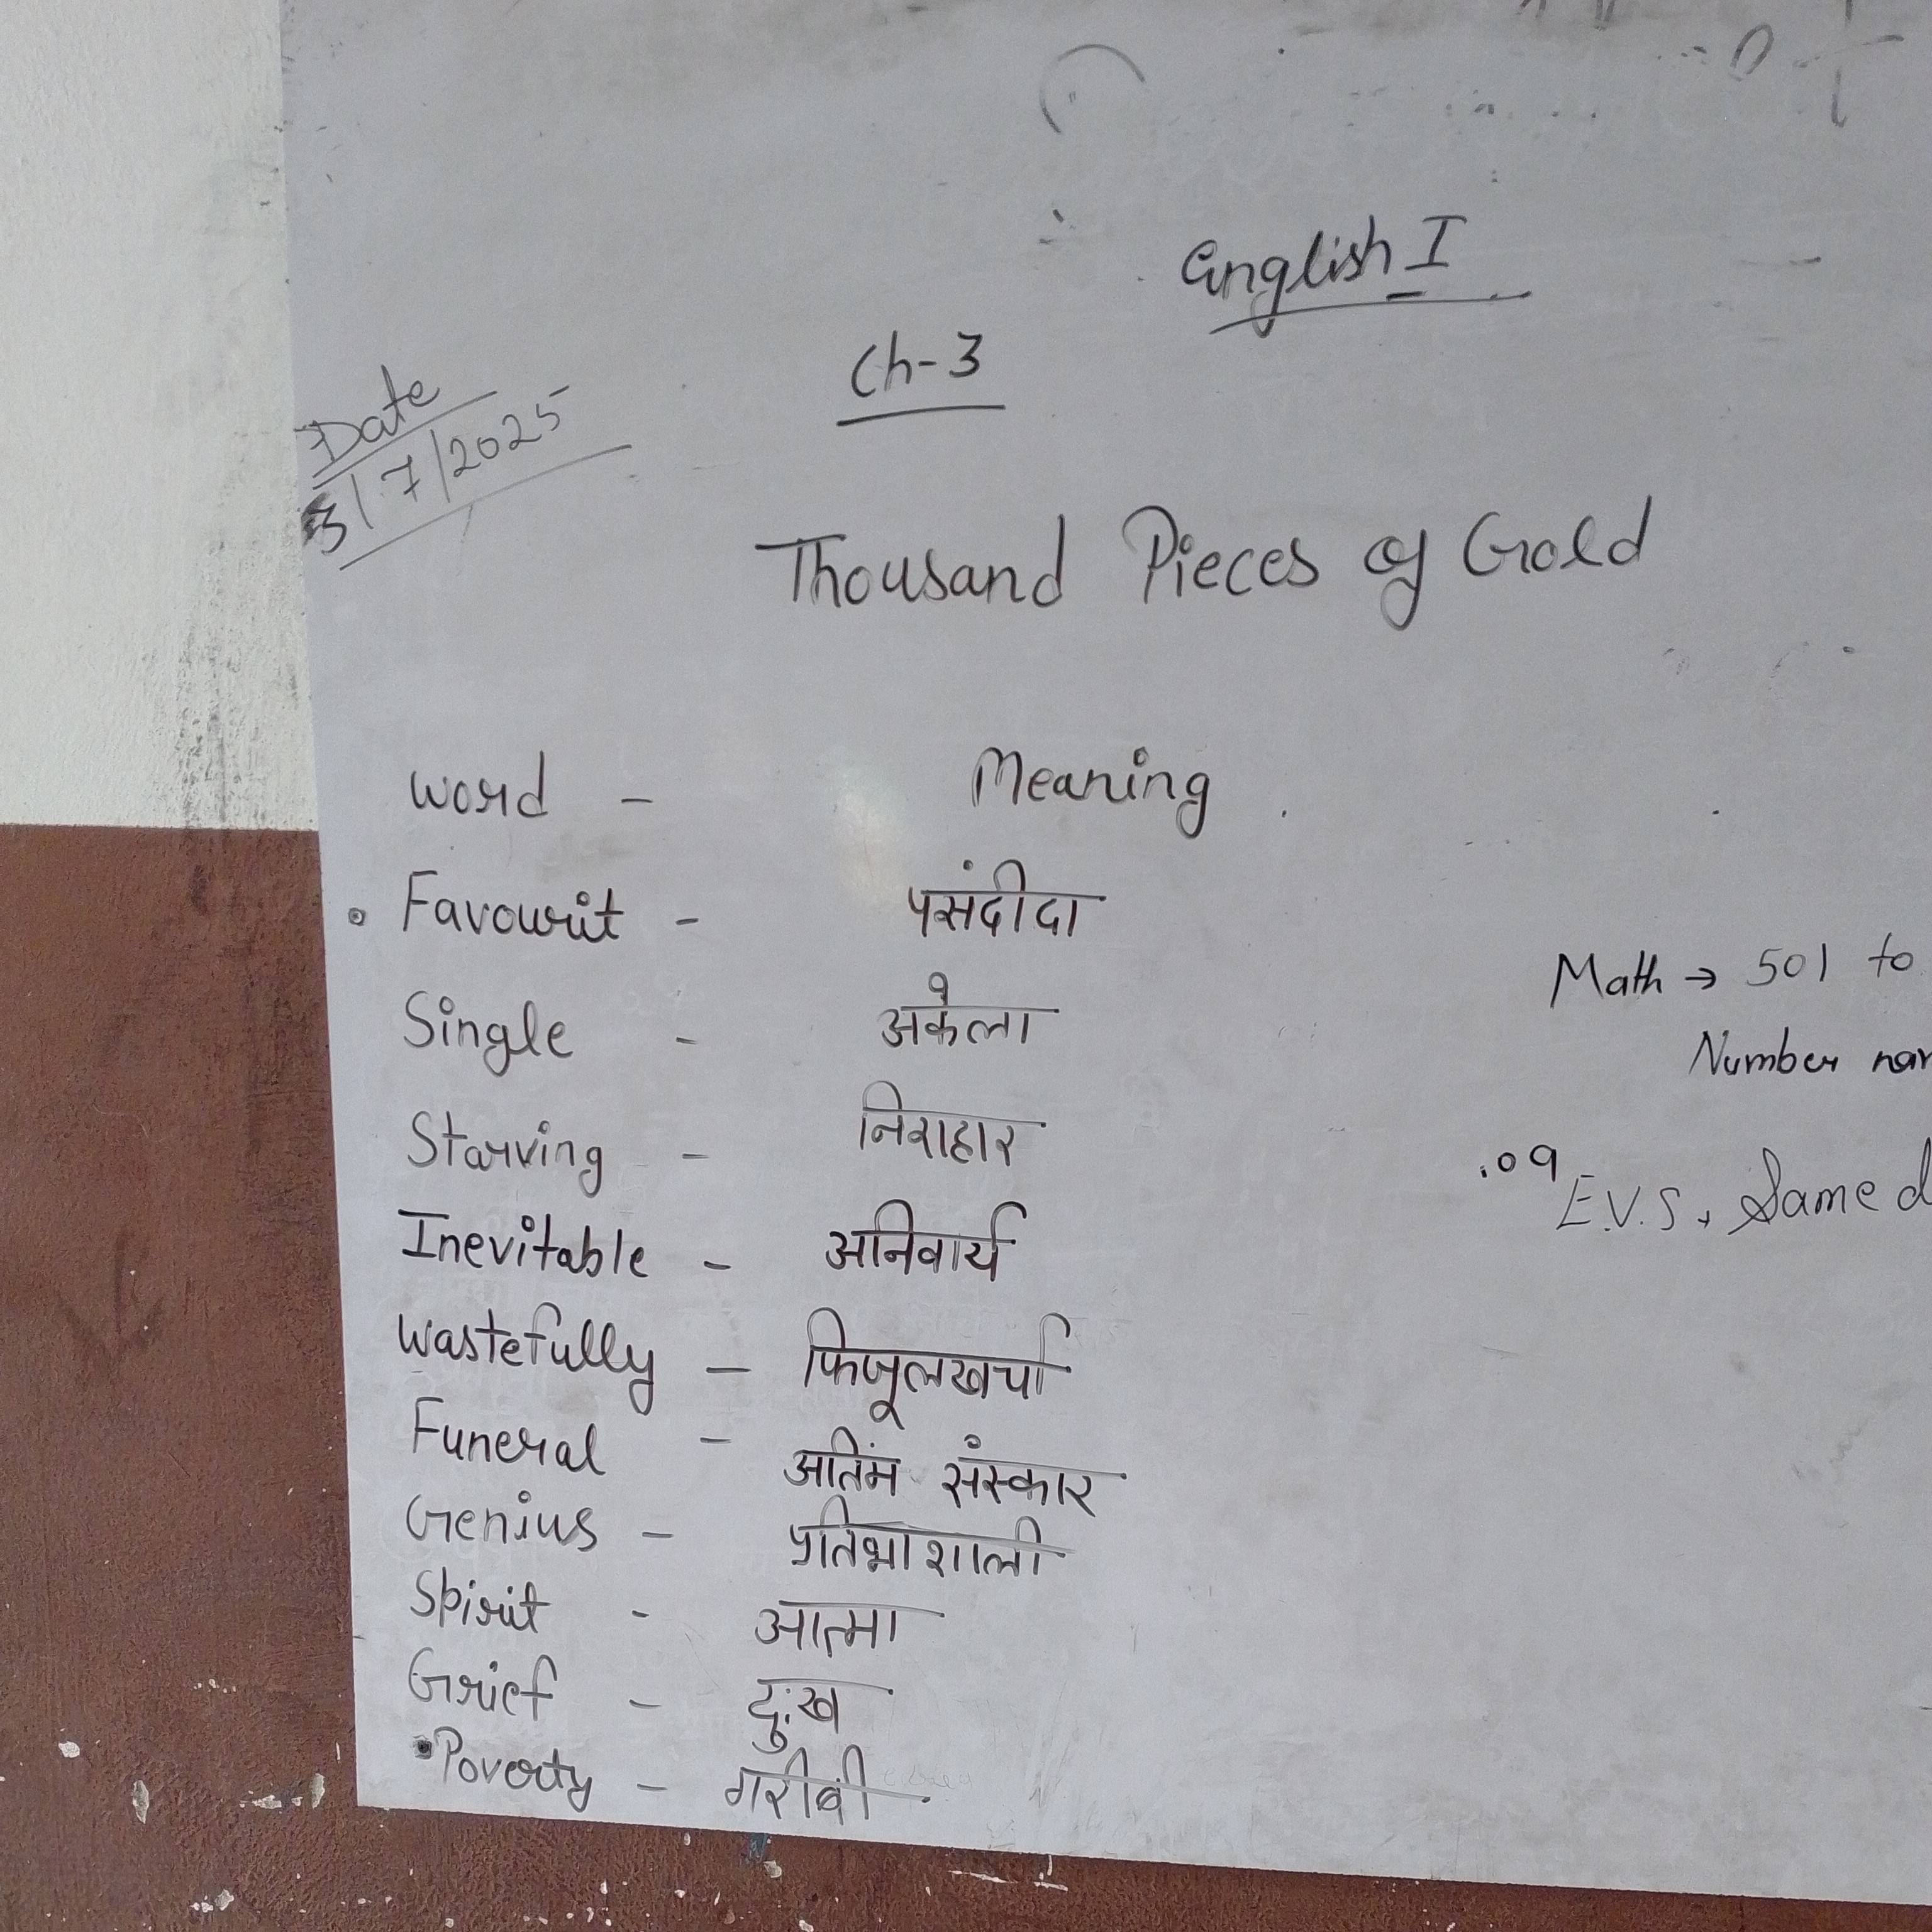 English I
Ch-3
Date
3/7/2025
Thousand Pieces of Gold
Word - Meaning
Favourit - पसंदीदा
Single - अकेला
Starving - निराहार
Inevitable - अनिवार्य
Wastefully - फिजूलखर्ची
Funeral - अतिंम संस्कार
Genius - प्रतिभाशाली
Spirit - आत्मा
Grief - दुःख
Poverty - गरीबी
Math → 501 to
Number
E.V.S, Same